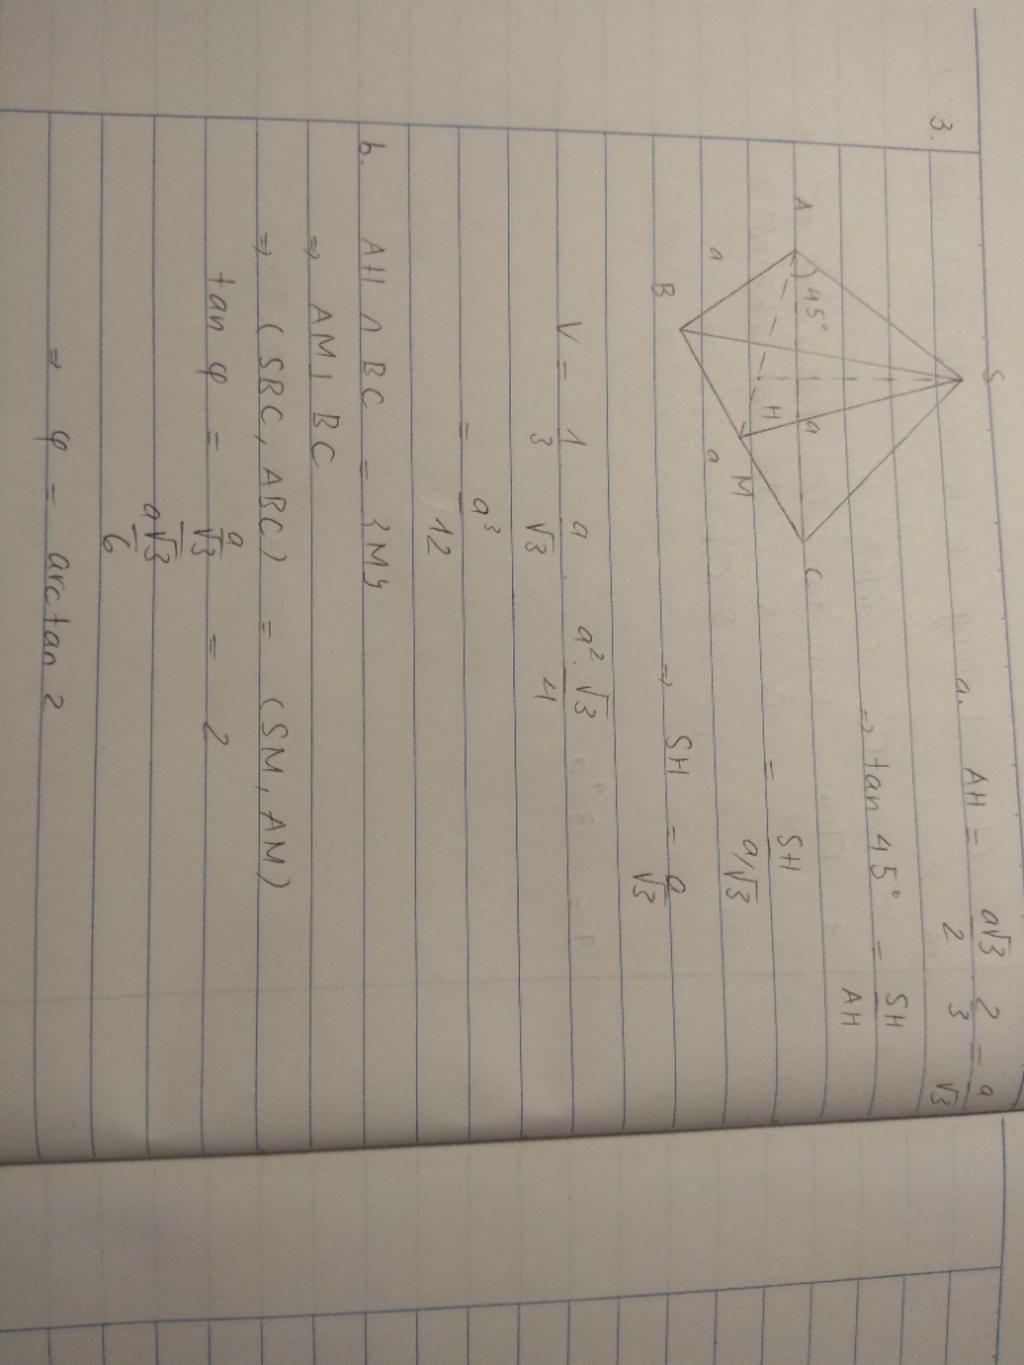 3.
S
A
45°
a
C
H
a
M
B
a
a. AH = a√3/2 · 2/3 = a/√3
⇒ tan 45° = SH/AH
= SH/(a/√3)
⇒ SH = a/√3
V = 1/3 · a/√3 · a²·√3/4
= a³/12
b. AH ∩ BC = {M}
⇒ AM ⊥ BC
⇒ (SBC, ABC) = (SM, AM)
tan φ = (a/√3)/(a√3/6) = 2
⇒ φ = arctan 2